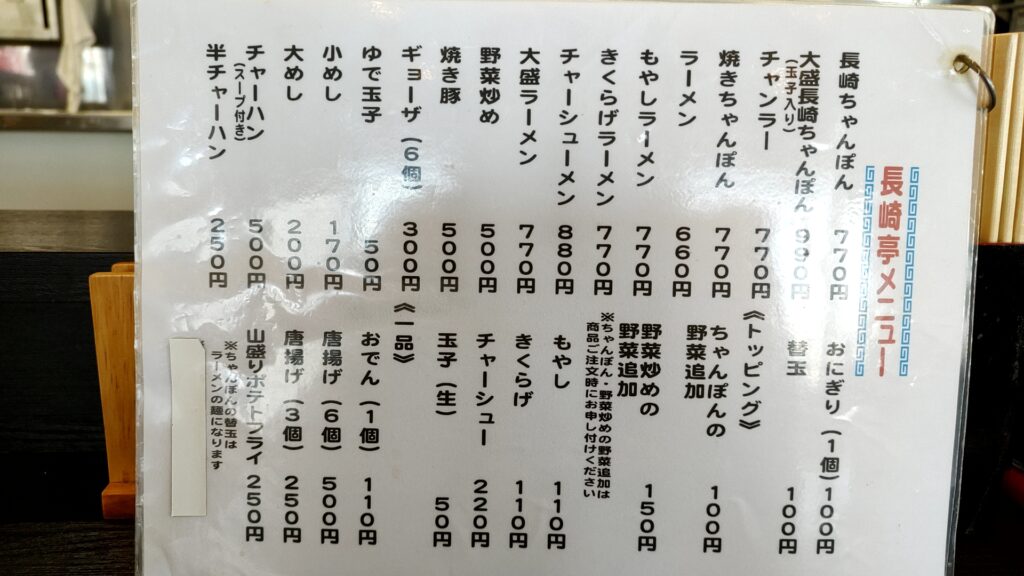 長崎亭メニュー
長崎ちゃんぽん 770円
大盛長崎ちゃんぽん 990円
(玉子入り)
チャンラー 770円
焼きちゃんぽん 770円
ラーメン 660円
もやしラーメン 770円
きくらげラーメン 770円
チャーシューメン 880円
大盛ラーメン 770円
野菜炒め 500円
焼き豚 500円
ギョーザ(6個) 300円
ゆで玉子 50円
小めし 170円
大めし 200円
チャーハン 500円
(スープ付き)
半チャーハン 250円
おにぎり(1個) 100円
替玉 100円
《トッピング》
ちゃんぽんの
野菜追加 100円
野菜炒めの
野菜追加 150円
※ちゃんぽん・野菜炒めの野菜追加は
商品ご注文時にお申し付けください
もやし 110円
きくらげ 110円
チャーシュー 220円
玉子(生) 50円
《一品》
おでん(1個) 110円
唐揚げ(6個) 500円
唐揚げ(3個) 250円
山盛りポテトフライ 250円
※ちゃんぽんの替玉は
ラーメンの麺になります